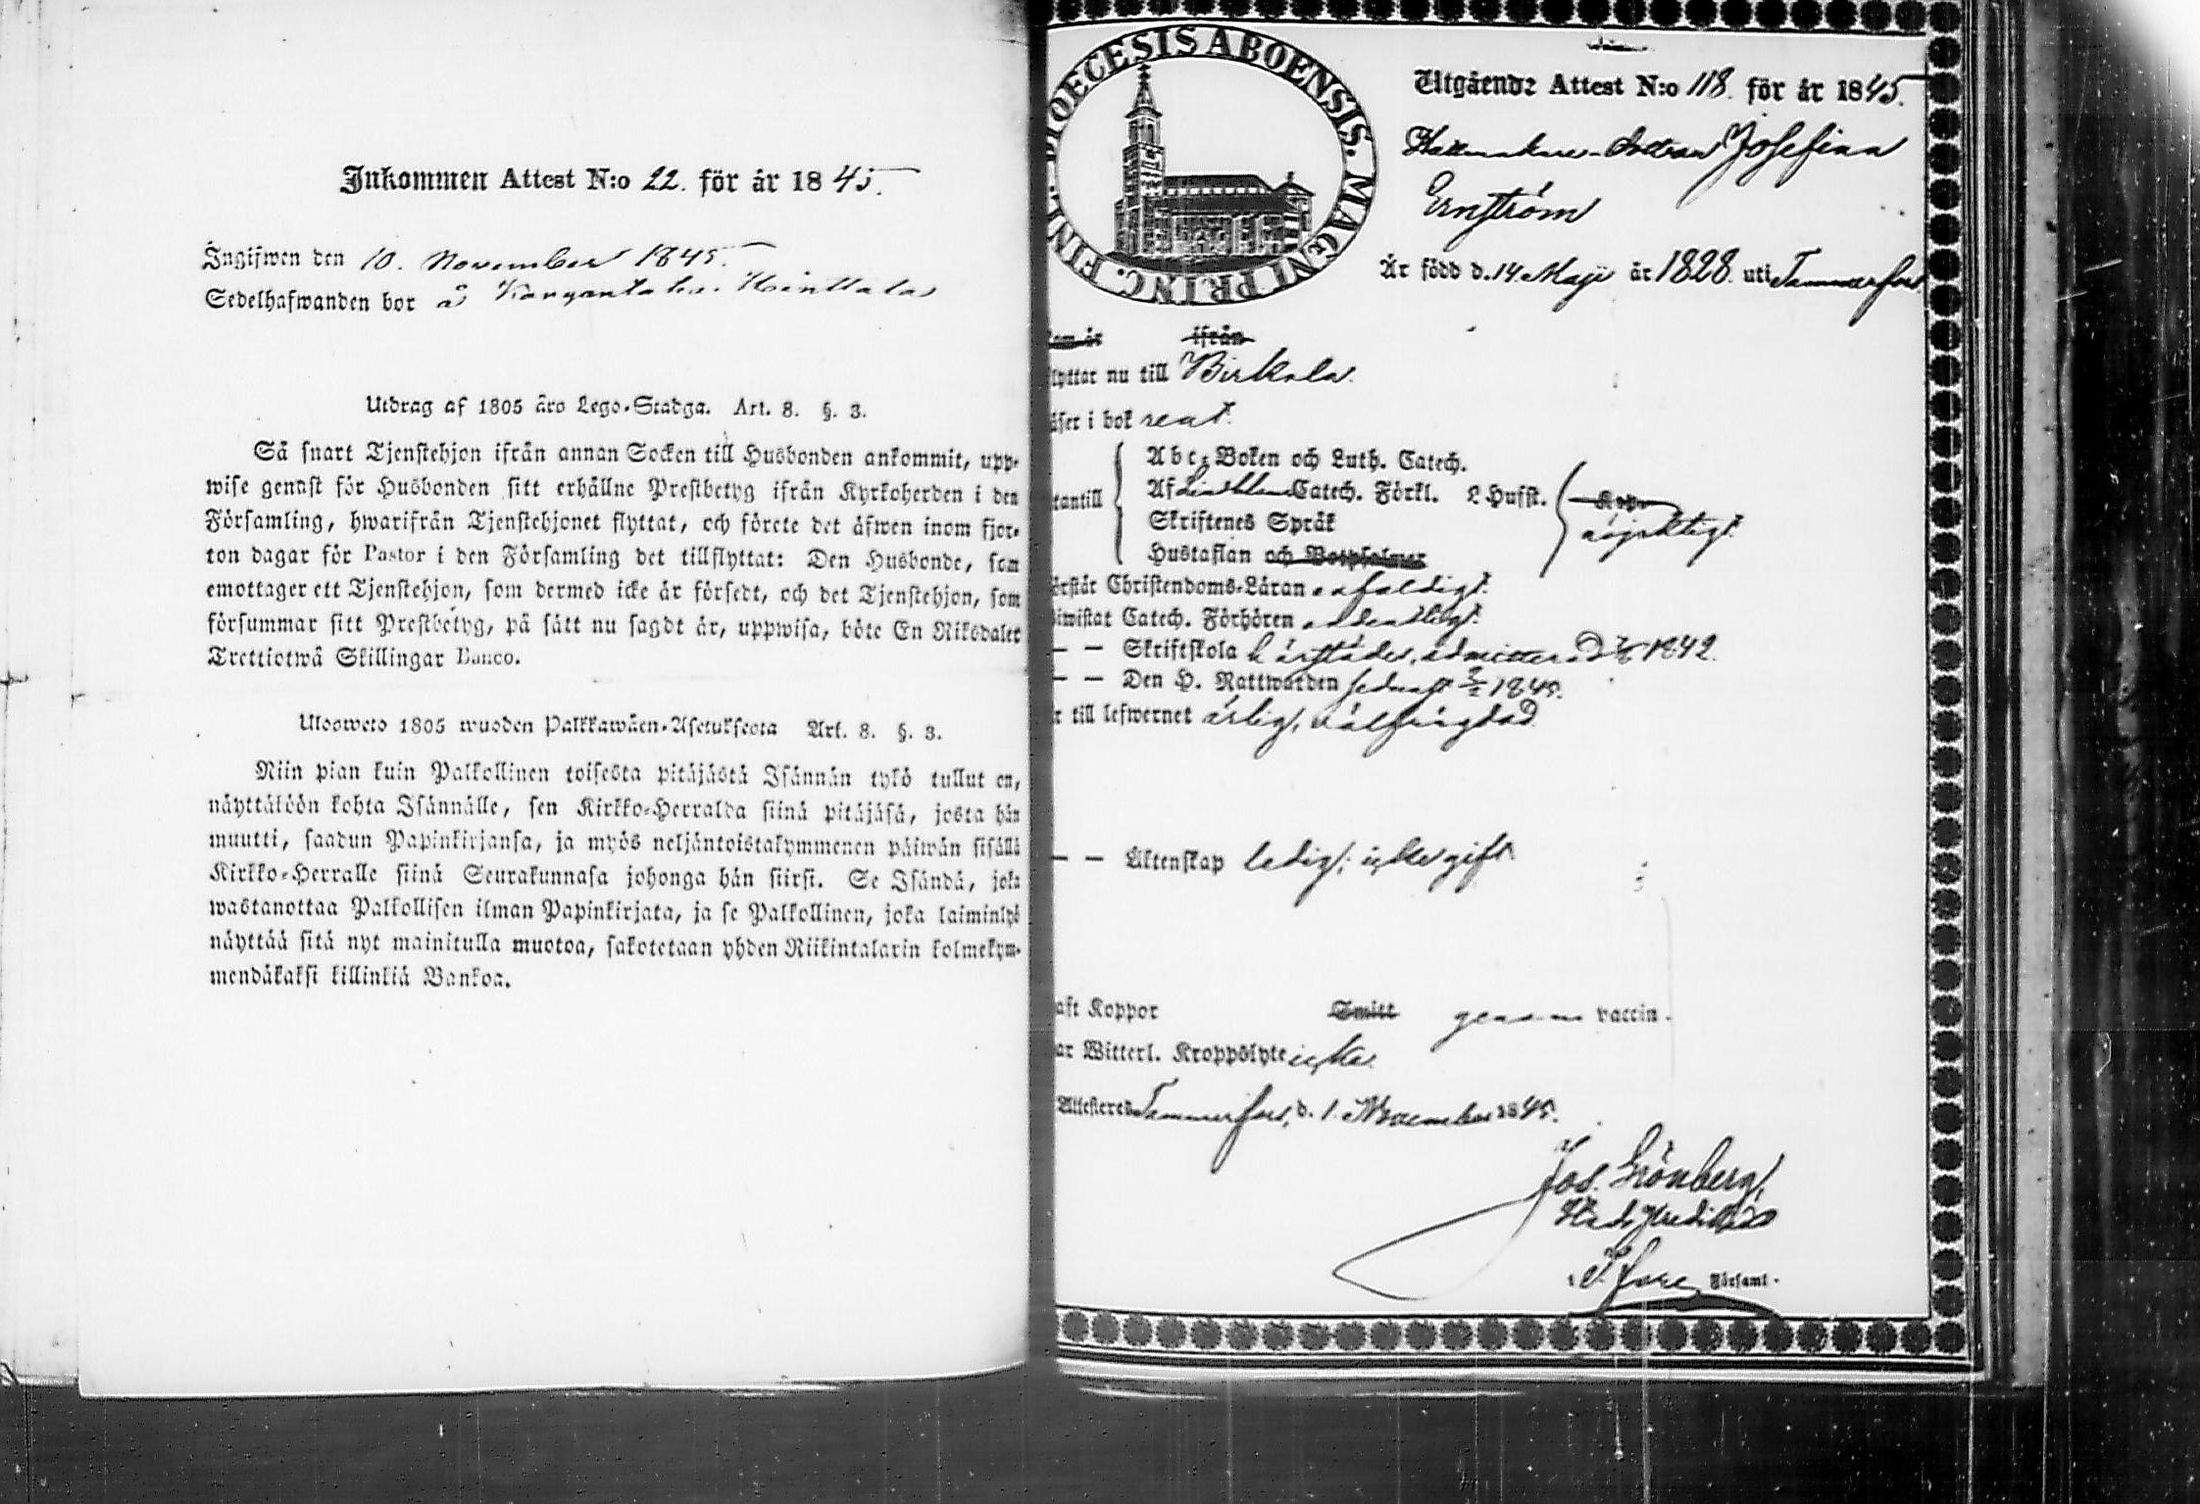 Inkommen Attest N:o 22. för år 1845.
Ingifwen den 10. November 1845.
Sedelhafwanden bor å Kangasala Hinttala
Utdrag af 1805 års Lego-Stadga. Art. 8. §. 3.
Så snart Tjenstehjon ifrån annan Socken till Husbonden ankommit, upp-
wise genast för Husbonden sitt erhållne Prestbetyg ifrån Kyrkoherden i den
Församling, hwarifrån Tjenstehjonet flyttat, och förete det äfwen inom fjor-
ton dagar för Pastor i den Församling det tillflyttat: Den Husbonde, som
emottager ett Tjenstehjon, som dermed icke är försedt, och det Tjenstehjon, som
försummar sitt Prestbetyg, på sätt nu sagdt är, uppwisa, böte En Riksdaler
Trettiotwå Skillingar Banco.
Ulosweto 1805 wuoden Palkkawäen-Asetuksesta Art. 8. §. 3.
Niin pian kuin Palkollinen toisesta pitäjästä Isännän tykö tullut on,
näyttäköön kohta Isännälle, sen Kirkko-Herralda siinä pitäjäsä, josta hän
muutti, saadun Papinkirjansa, ja myös neljäntoistakymmenen päiwän sisällä
Kirkko-Herralle siinä Seurakunnasa johonga hän siirsi. Se Isändä, joka
wastanottaa Palkollisen ilman Papinkirjata, ja se Palkollinen, joka laiminlyö
näyttää sitä nyt mainitulla muotoa, sakotetaan yhden Riikintalarin kolmekym-
mendäkaksi killinkiä Bankoa.
DIOECESIS ABOENSIS. MAGNI PRINC. FINL.
Utgående Attest N:o 118. för år 1845.
Josefina
Ernström
Är född d. 14 Maji år 1828. uti Tammerfors
kom år ifrån
flyttar nu till Birkala.
läser i bok rent.
Abc-Boken och Luth. Catech.
utantill Af Lindbloms Catech. Förkl. L Hufst. nöjaktigt.
Skriftenes Språk
Hustaflan och Botpsalmer
förstår Christendoms-Läran enfaldigt.
biwistat Catech. Förhören ordentligt.
— — Skriftskola härstädes, admitterad 1842.
— — Den H. Nattwarden sednast 1845.
är till lefwernet ärlig, wälfrägdad
— — Äktenskap ledig; icke gift
haft Koppor Smitt genom vaccin.
har Witterl. Kroppslyte icke.
Attesteras Tammerfors, d. 1. November 1845.
Jos. Grönberg,
i T:fors Församl.